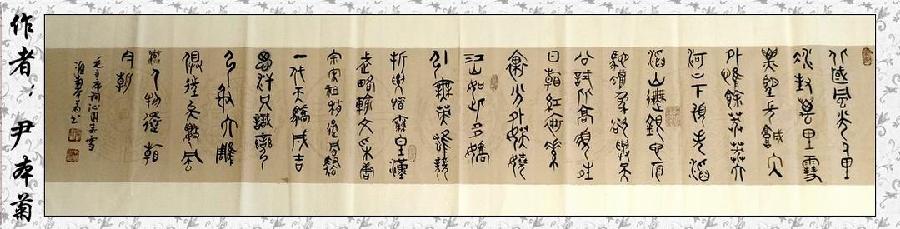 作者：尹本菊
北國風光千里
冰封萬里雪
飄望長城内
外惟餘莽莽大
河上下頓失滔
滔山舞銀蛇原
馳蠟象欲與天
公試比高須晴
日看紅裝素
裹分外妖嬈
江山如此多嬌
引無數英雄競
折腰惜秦皇漢
武略輸文采唐
宗宋祖稍遜風騷
一代天驕成吉
思汗只識彎
弓射大雕
俱往矣數風
流人物還看
今朝
毛主席詞沁園春雪